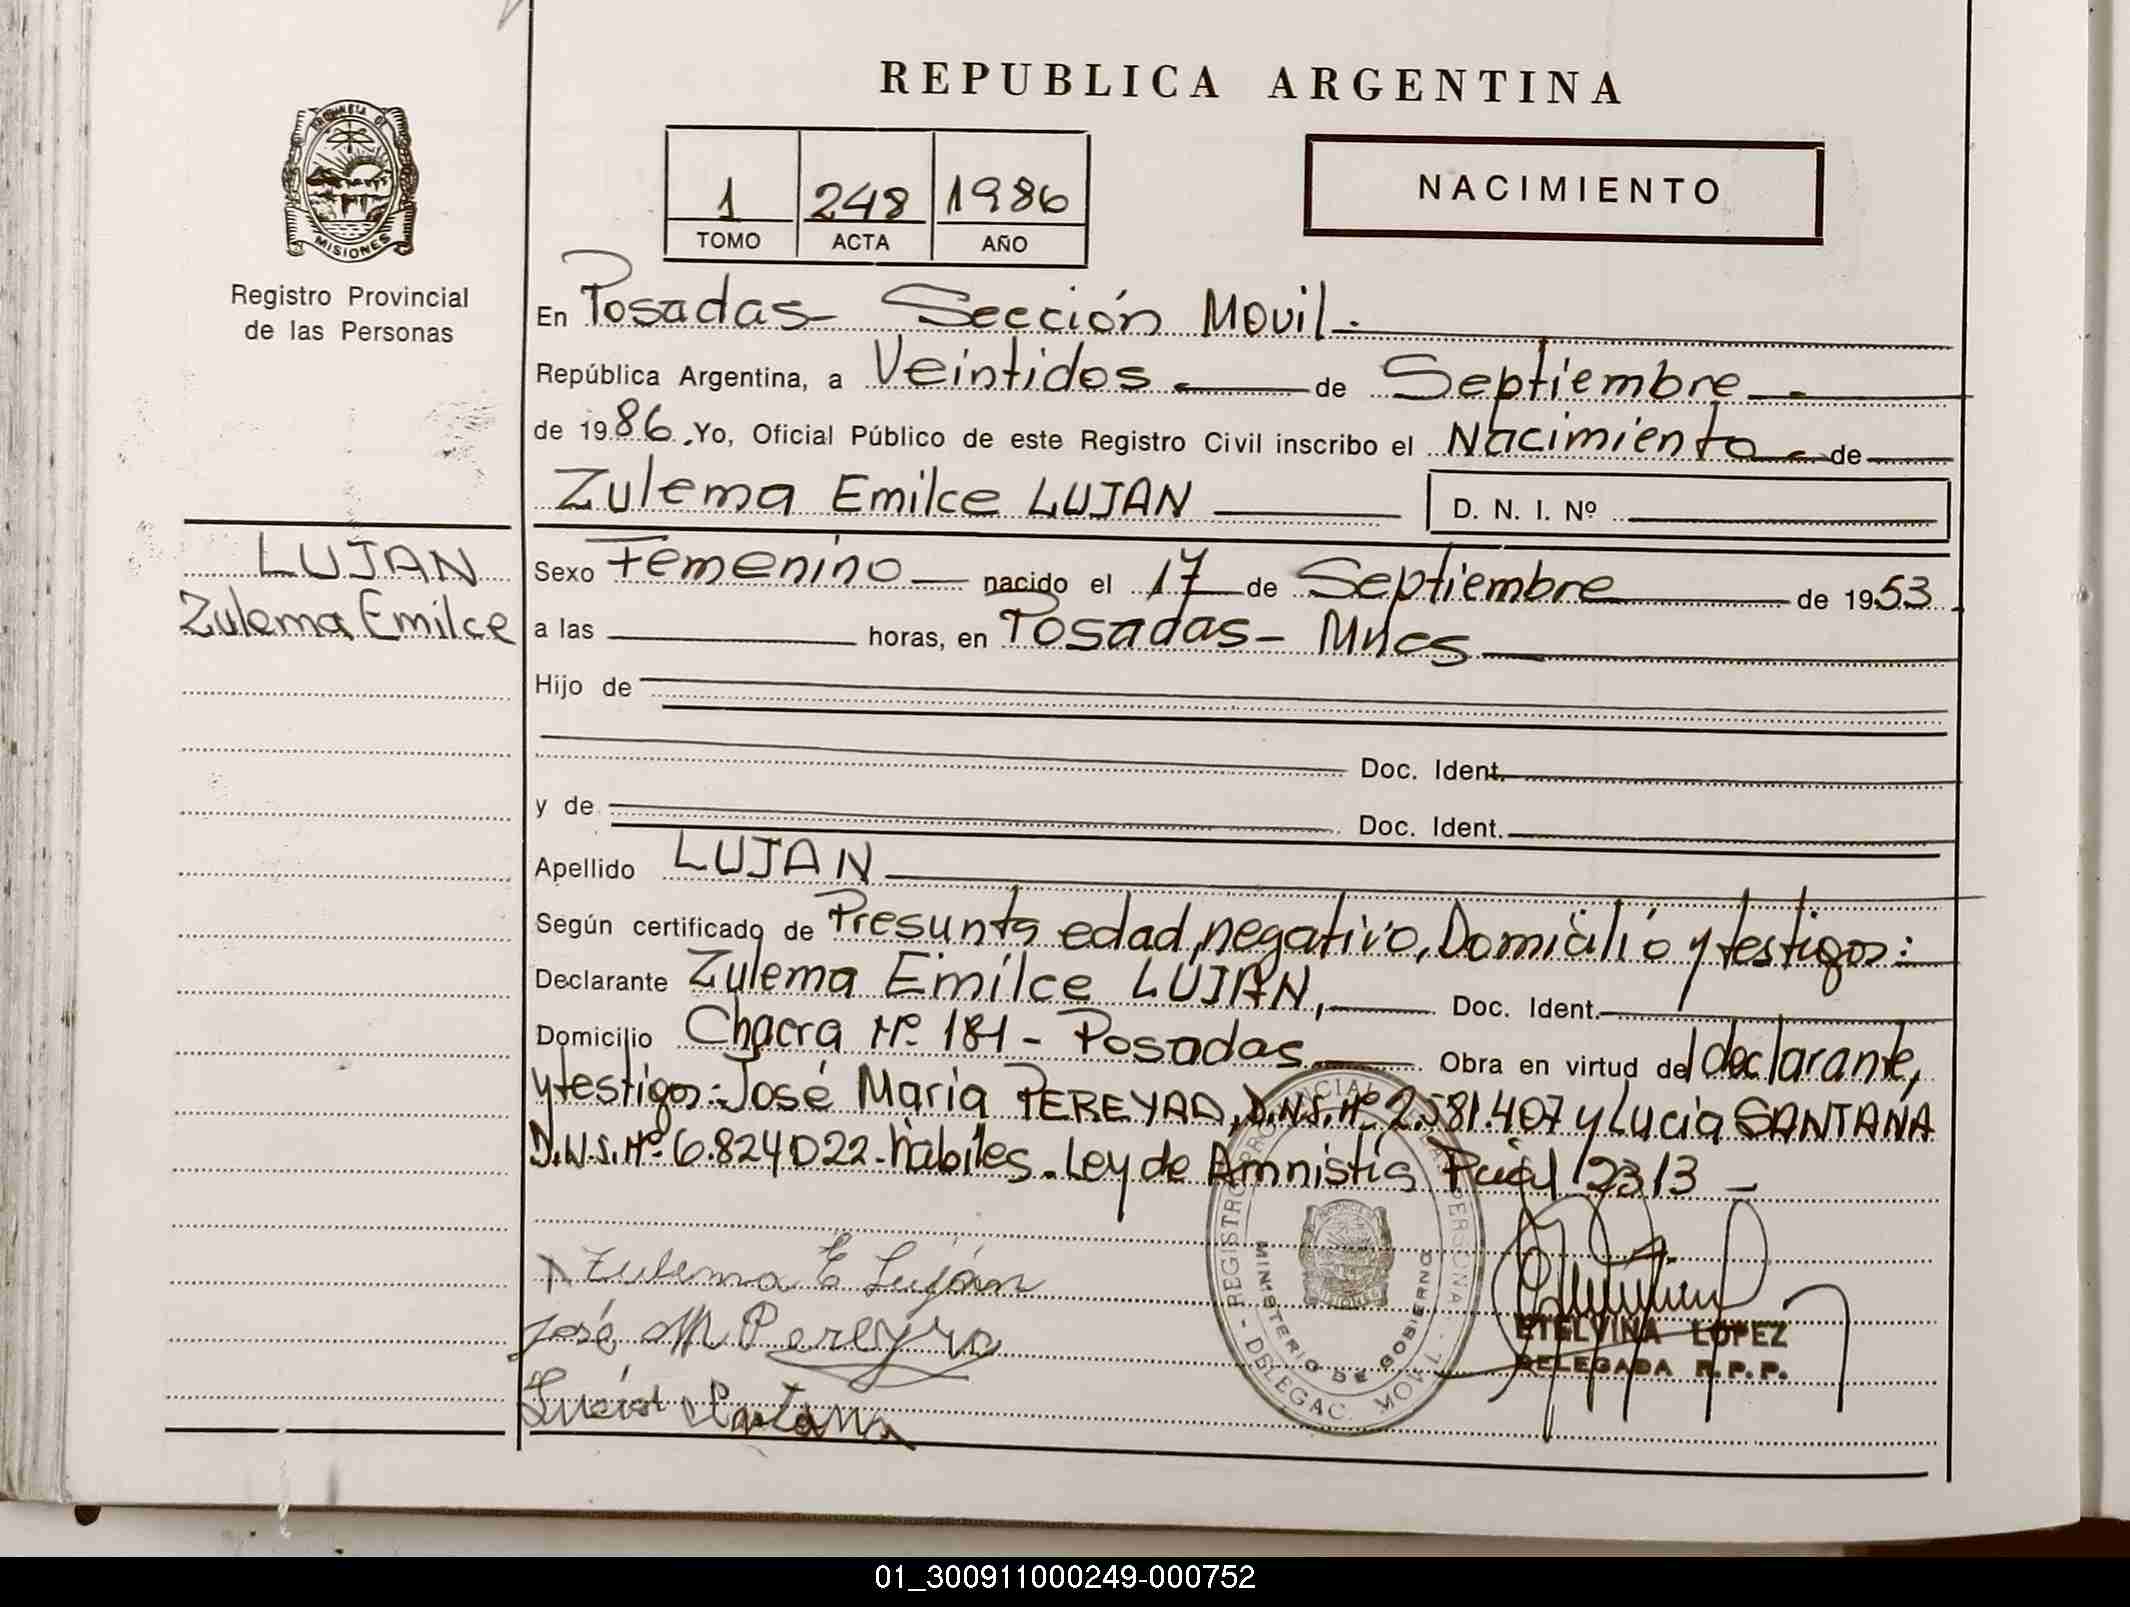 REPUBLICA ARGENTINA
PROVINCIA DE
MISIONES
Registro Provincial
de las Personas
1 248 1986
TOMO ACTA AÑO
NACIMIENTO
En Posadas- Sección Movil.-
República Argentina, a Veintidos de Septiembre
de 1986. Yo, Oficial Público de este Registro Civil inscribo el Nacimiento de
Zulema Emilce LUJAN D. N. I. Nº
LUJAN
Zulema Emilce
Sexo Femenino nacido el 17 de Septiembre de 1953
a las horas, en Posadas- Mnes
Hijo de
Doc. Ident.
y de Doc. Ident.
Apellido LUJAN
Según certificado de Presunta edad, negativo, Domicilio y testigos:
Declarante Zulema Emilce LUJAN, Doc. Ident.
Domicilio Chacra Nº 181 - Posadas Obra en virtud del declarante,
y testigos: José Maria D.N.I. Nº 2.581.407 y Lucia SANTANA
D.N.I. Nº 6.824022-habiles. Ley de Amnistia 2313 -
Zulema E Luján
José M Pereyra
Lucia Santana
REGISTRO PROVINCIAL DE LAS PERSONAS - DELEGAC. MOVIL -
MINISTERIO DE GOBIERNO
ETELVINA LOPEZ
DELEGADA R.P.P.
01_300911000249-000752